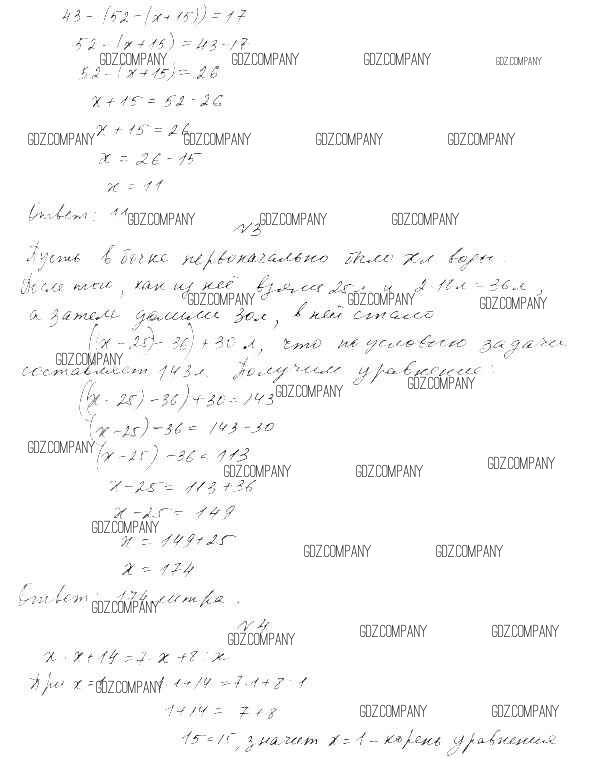 43 - (52 - (x + 15)) = 17
52 - (x + 15) = 43 - 17
GDZ.COMPANY GDZ.COMPANY GDZ.COMPANY GDZ.COMPANY
52 - (x + 15) = 26
x + 15 = 52 - 26
x + 15 = 26
GDZ.COMPANY GDZ.COMPANY GDZ.COMPANY GDZ.COMPANY
x = 26 - 15
x = 11
Ответ: 11
GDZ.COMPANY GDZ.COMPANY GDZ.COMPANY
№3
Пусть в бочке первоначально было x л воды.
После того, как из неё взяли 25 л и 2·18 л = 36 л,
GDZ.COMPANY GDZ.COMPANY GDZ.COMPANY
а затем долили 30 л, в ней стало
((x - 25) - 36) + 30 л, что по условию задачи
GDZ.COMPANY
составляет 143 л. Получим уравнение:
GDZ.COMPANY GDZ.COMPANY
((x - 25) - 36) + 30 = 143
(x - 25) - 36 = 143 - 30
GDZ.COMPANY
(x - 25) - 36 = 113
GDZ.COMPANY GDZ.COMPANY GDZ.COMPANY
x - 25 = 113 + 36
x - 25 = 149
GDZ.COMPANY
x = 149 + 25
GDZ.COMPANY GDZ.COMPANY
x = 174
Ответ: 174 литра.
GDZ.COMPANY
№4
GDZ.COMPANY GDZ.COMPANY GDZ.COMPANY
x · x + 14 = 7 · x + 8 · x
При x = 1 1 · 1 + 14 = 7 · 1 + 8 · 1
GDZ.COMPANY
1 + 14 = 7 + 8
GDZ.COMPANY GDZ.COMPANY
15 = 15, значит x = 1 - корень уравнения